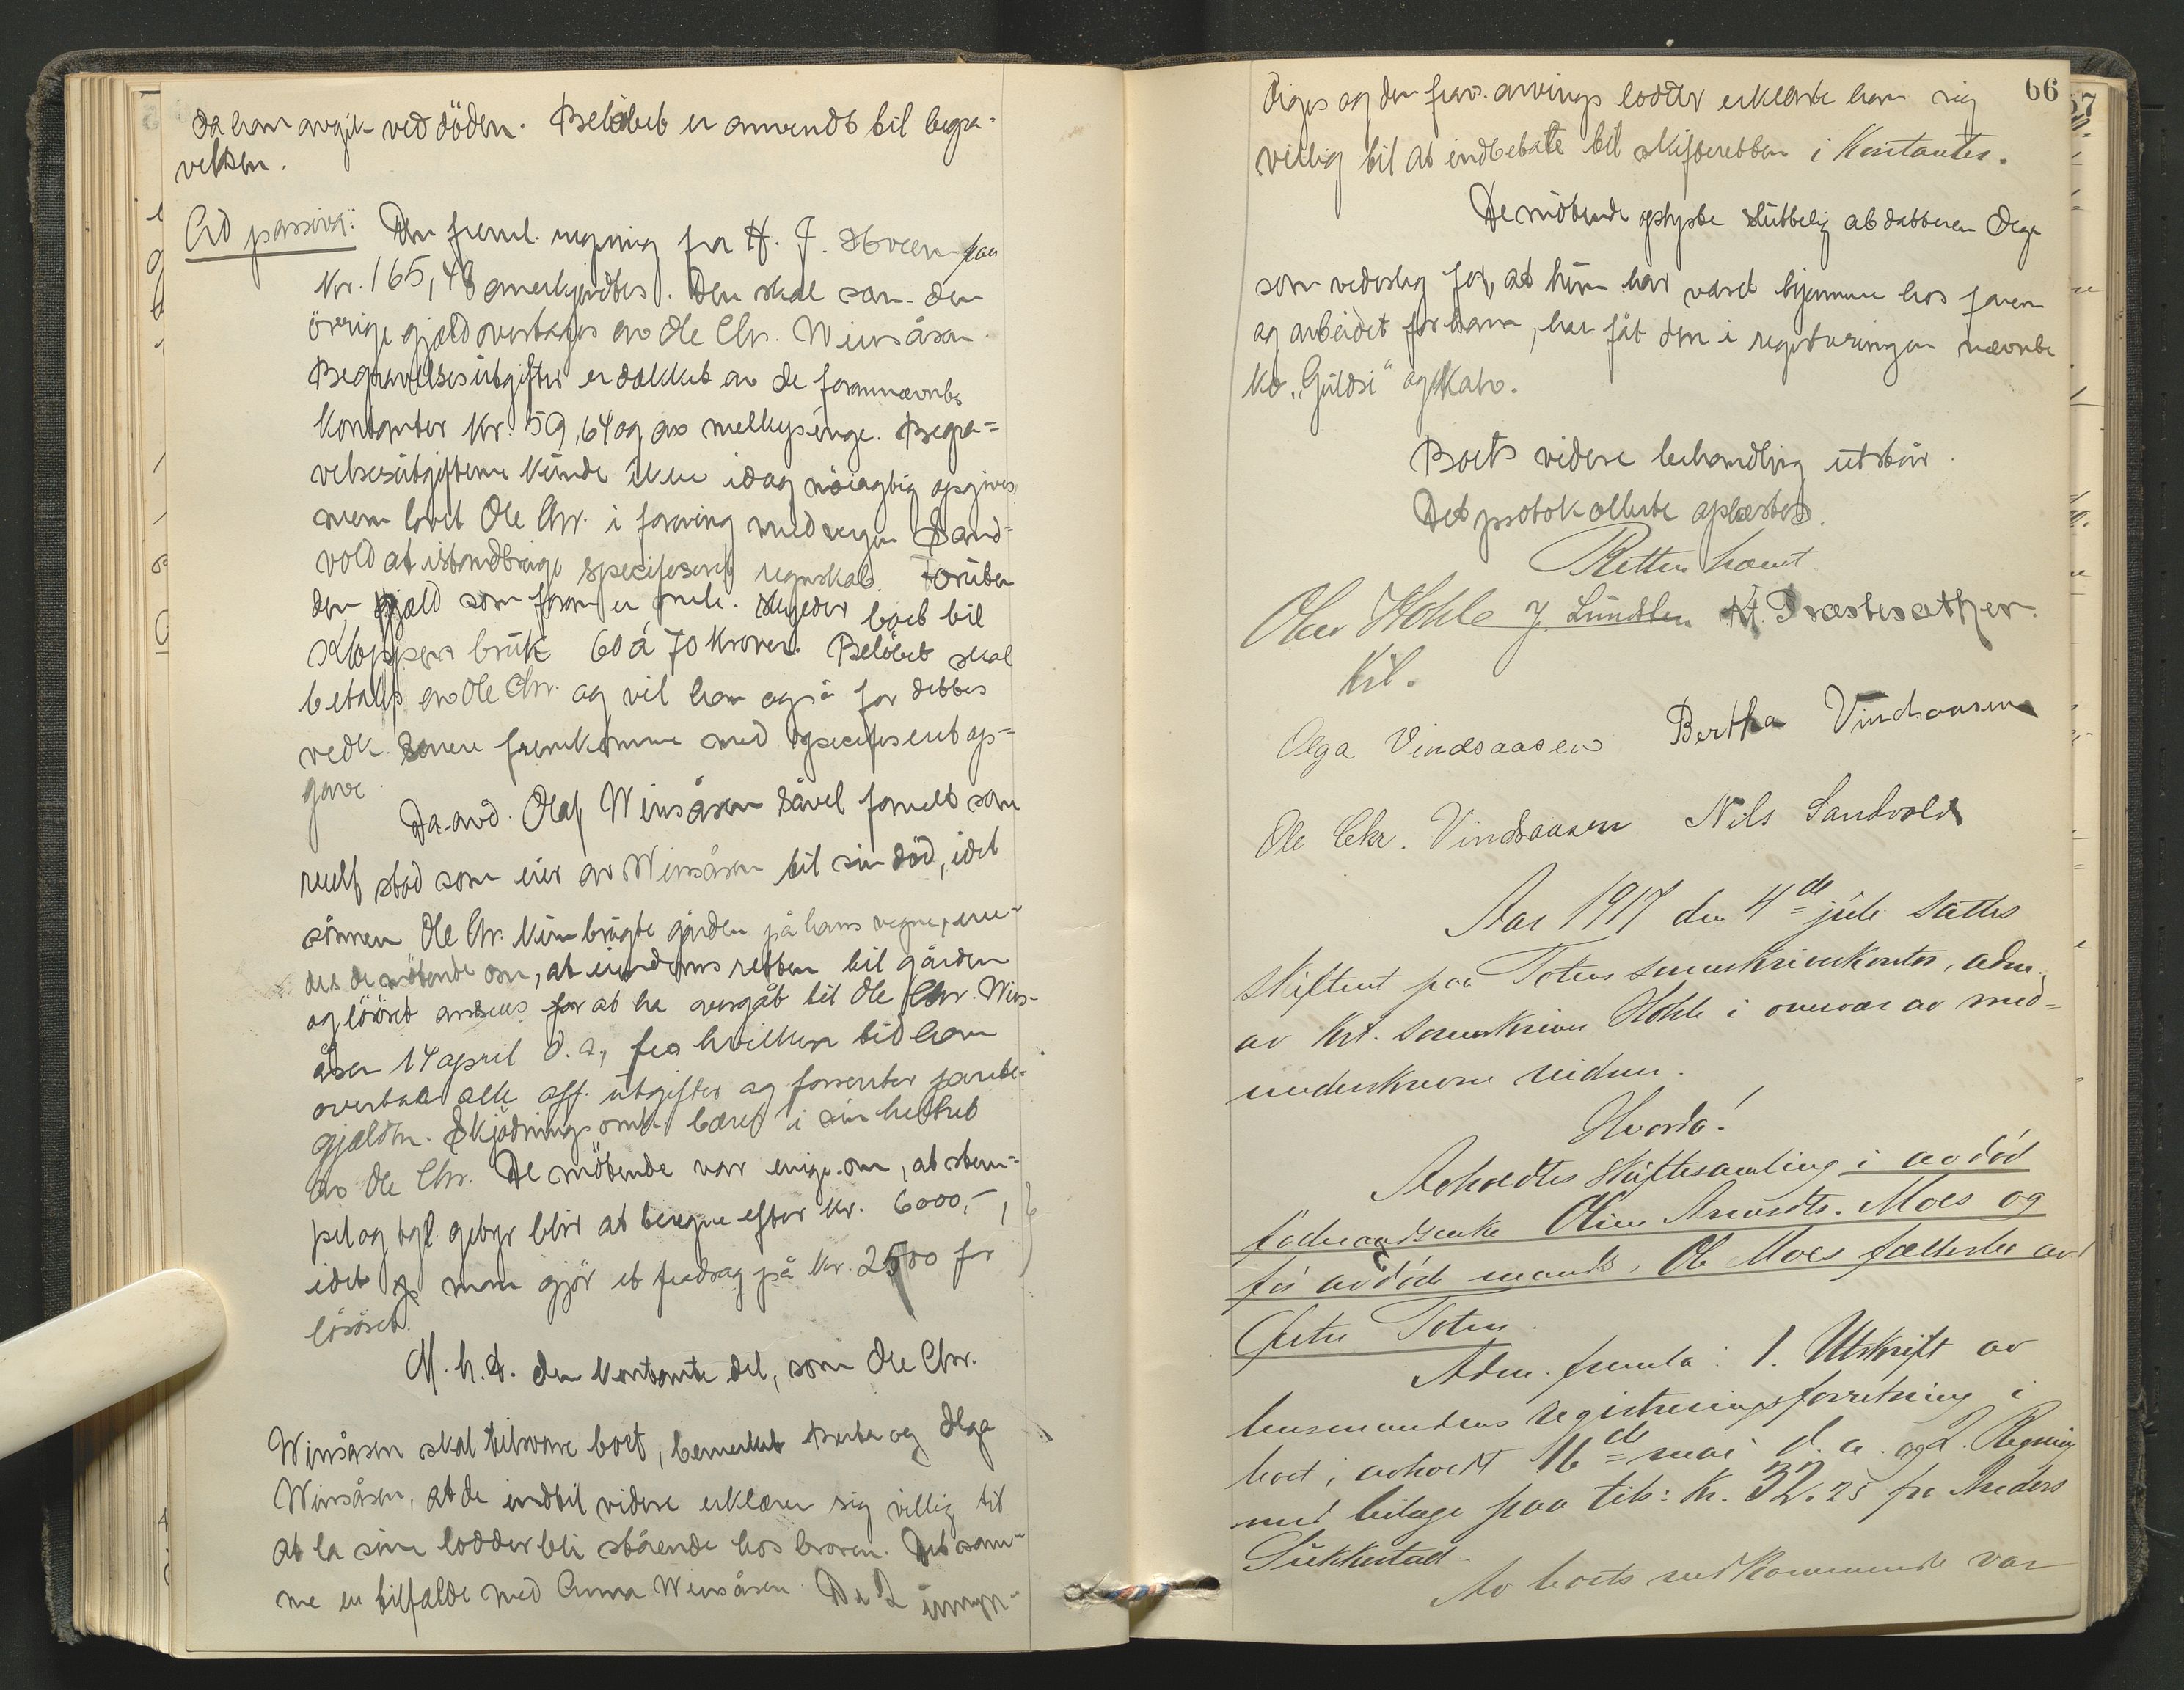 da han avgik ved döden. Belöbet er anvendt til begra-
velsen.
Ad passiva: Den freml. regning fra H. J. paa
Kr. 165,48 anerkjendtes. Den skal som den
övrige gjæld overtages av Ole Chr. Winsåsen.
Begravelsesutgifter er dækket av de forannævnte
kontanter kr. 59,64 og av melkepenge. Begra-
velsesutgifterne kunde ikke idag nöiagtig opgives,
men lovet Ole Chr. i forening med vergen Sand-
vold at istandbringe specifisert regnskab. Foruten
den gjæld som foran er skylder boet til
bruk 60 á 70 kroner. Belöbet skal
betales av Ole Chr. og vil han også for dettes
vedk. senere fremkomme med specifisert op-
gave.
Da avd. Olaf Winsåsen såvel formelt som
reelt stod som eier av Winsåsen til sin död, idet
sönnen Ole Chr. kun brugte gården på hans vegne, ene-
des de mötende om, at eiendomsretten til gården
og lösöret ansees for at ha overgåt til Ole Chr. Wins-
åsen 14 april d. a., fra hvilken tid han
overtar alle off. utgifter og forrenter pante-
gjælden. Skjödningsomk. bæres i sin helhet
av Ole Chr. De mötende var enige om, at stem-
pel og tgl. gebyr blir at beregne efter kr. 6000,-,
idet man gjör et fradrag på kr. 2500 for
lösöret.
M. h. t. den kontante del, som Ole Chr.
Winsåsen skal tilsvare boet, bemerket Berta og Olga
Winsåsen, at de indtil videre erklærer sig villig til
at la sine lodder bli stående hos broren. Det sam-
me er tilfælde med Anna Winsåsen. De 2 umyn-
66
57
diges og den frav. arvings lodder erklærte han sig
villig til at indbetale til skifteretten i Kontanter.
De mötende oplyste sluttelig at datteren Olga
som vederlag for, at hun har været hjemme hos faren
og arbeidet for ham, har fåt den i registreringen nævnte
ko „Guldsi“ og kalv.
Boets videre behandling utstår.
Det protokollerte oplæstes.
Retten hævet
Olav Hohle J. Lundsten Kr. Præstesæther.
kst.
Olga Vindsaasen Bertha Vindsaasen
Ole Chr. Vindsaasen Nils Sandvold
Aar 1917 den 4de juli sattes
skifteret paa Totens sorenskriverkontor, adm.
av kst. sorenskriver Hohle i overvær av med-
underskrevne vidner.
Hvorda!
Avholdtes skiftesamling i avdöd
föderaadsenke Oline Arnesdtr. Moes og
för avdöde mands, Ole Moes fællesbo av
Östre Toten.
Adm. fremla: 1. Utskrift av
lensmandens registreringsforretning i
boet, avholdt 16de mai d. a. og 2. Regning
med bilage paa tils: kr. 32.25 fra Anders
Sukkestad.
Av boets vedkommende var